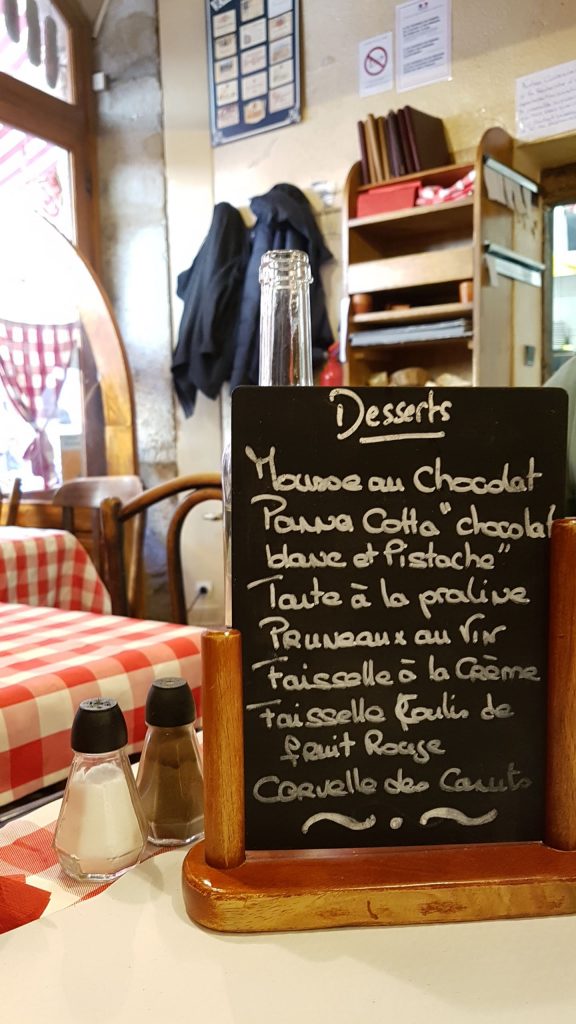 Desserts
Mousse au Chocolat
Panna Cotta "chocolat
blanc et Pistache"
Tarte à la praline
Pruneaux au Vin
Faisselle à la Crème
Faisselle Coulis de
fruit Rouge
Cervelle des Canuts